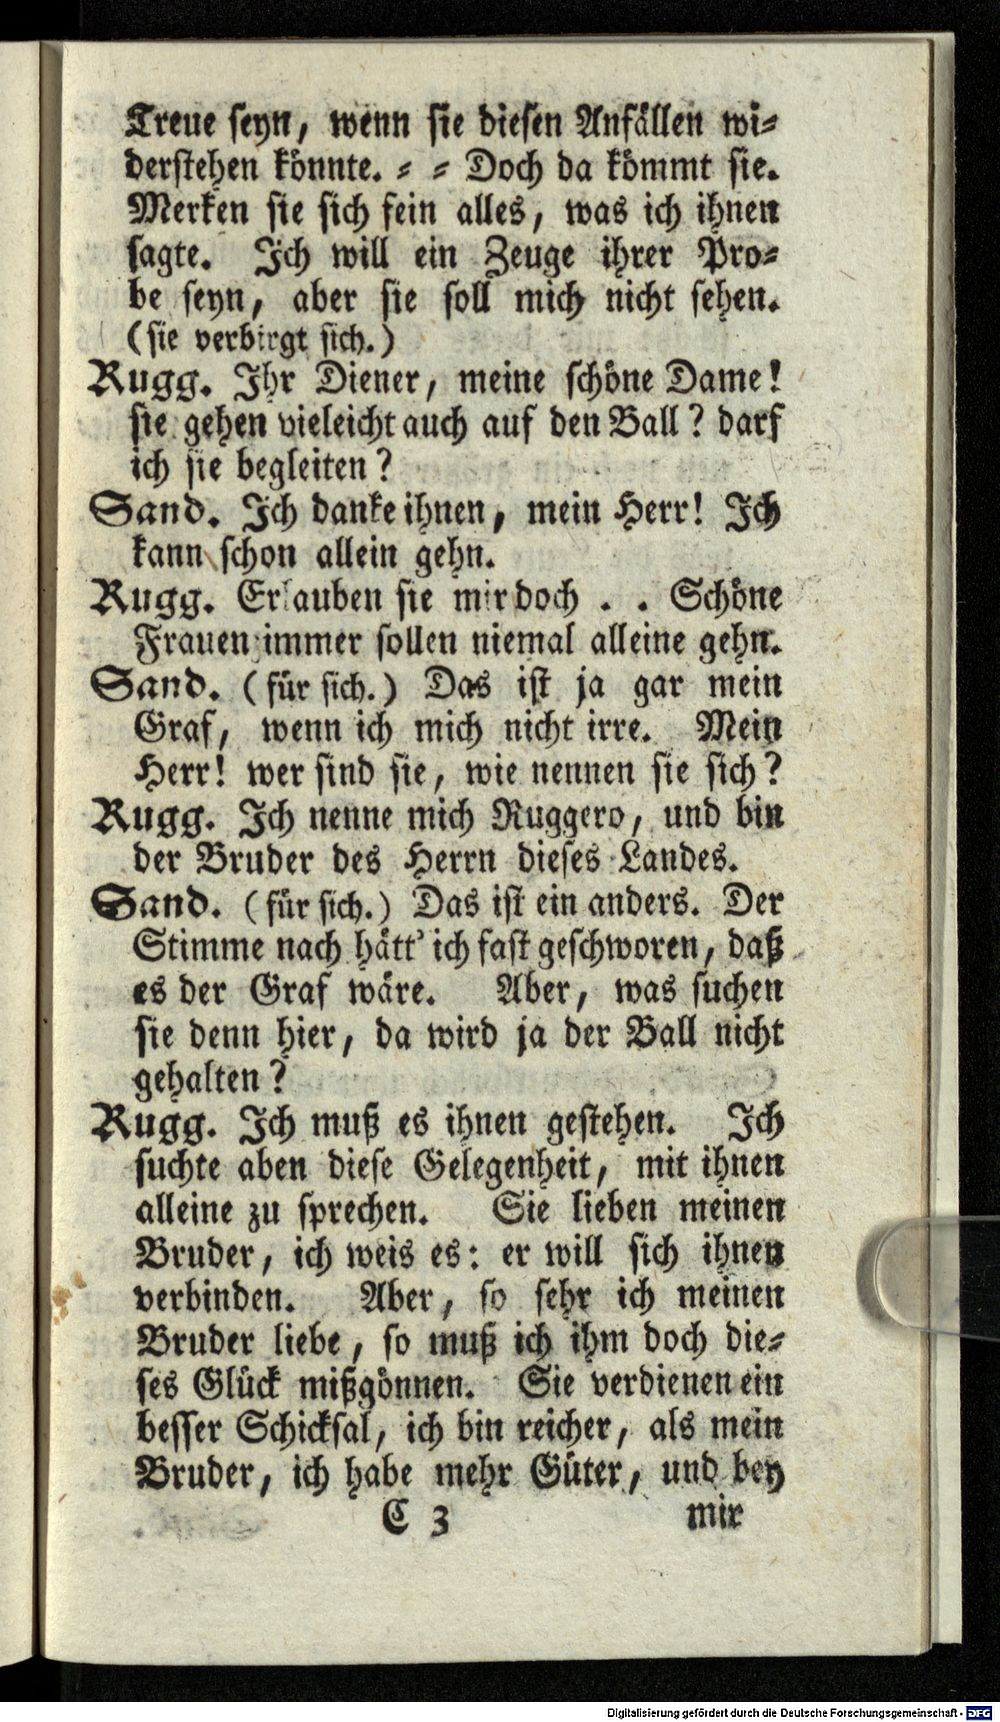 Treue seyn, wenn sie diesen Anfällen wi-
derstehen könnte. - - Doch da kömmt sie.
Merken sie sich fein alles, was ich ihnen
sagte. Ich will ein Zeuge ihrer Pro-
be seyn, aber sie soll mich nicht sehen.
(sie verbirgt sich.)
Rugg. Ihr Diener, meine schöne Dame!
sie gehen vieleicht auch auf den Ball? darf
ich sie begleiten?
Sand. Ich danke ihnen, mein Herr! Ich
kann schon allein gehn.
Rugg. Erlauben sie mir doch . . Schöne
Frauen immer sollen niemal alleine gehn.
Sand. (für sich.) Das ist ja gar mein
Graf, wenn ich mich nicht irre. Mein
Herr! wer sind sie, wie nennen sie sich?
Rugg. Ich nenne mich Ruggero, und bin
der Bruder des Herrn dieses Landes.
Sand. (für sich.) Das ist ein anders. Der
Stimme nach hätt' ich fast geschworen, daß
es der Graf wäre. Aber, was suchen
sie denn hier, da wird ja der Ball nicht
gehalten?
Rugg. Ich muß es ihnen gestehen. Ich
suchte aben diese Gelegenheit, mit ihnen
alleine zu sprechen. Sie lieben meinen
Bruder, ich weis es: er will sich ihnen
verbinden. Aber, so sehr ich meinen
Bruder liebe, so muß ich ihm doch die-
ses Glück mißgönnen. Sie verdienen ein
besser Schicksal, ich bin reicher, als mein
Bruder, ich habe mehr Güter, und bey
C 3 mir
Digitalisierung gefördert durch die Deutsche Forschungsgemeinschaft - DFG